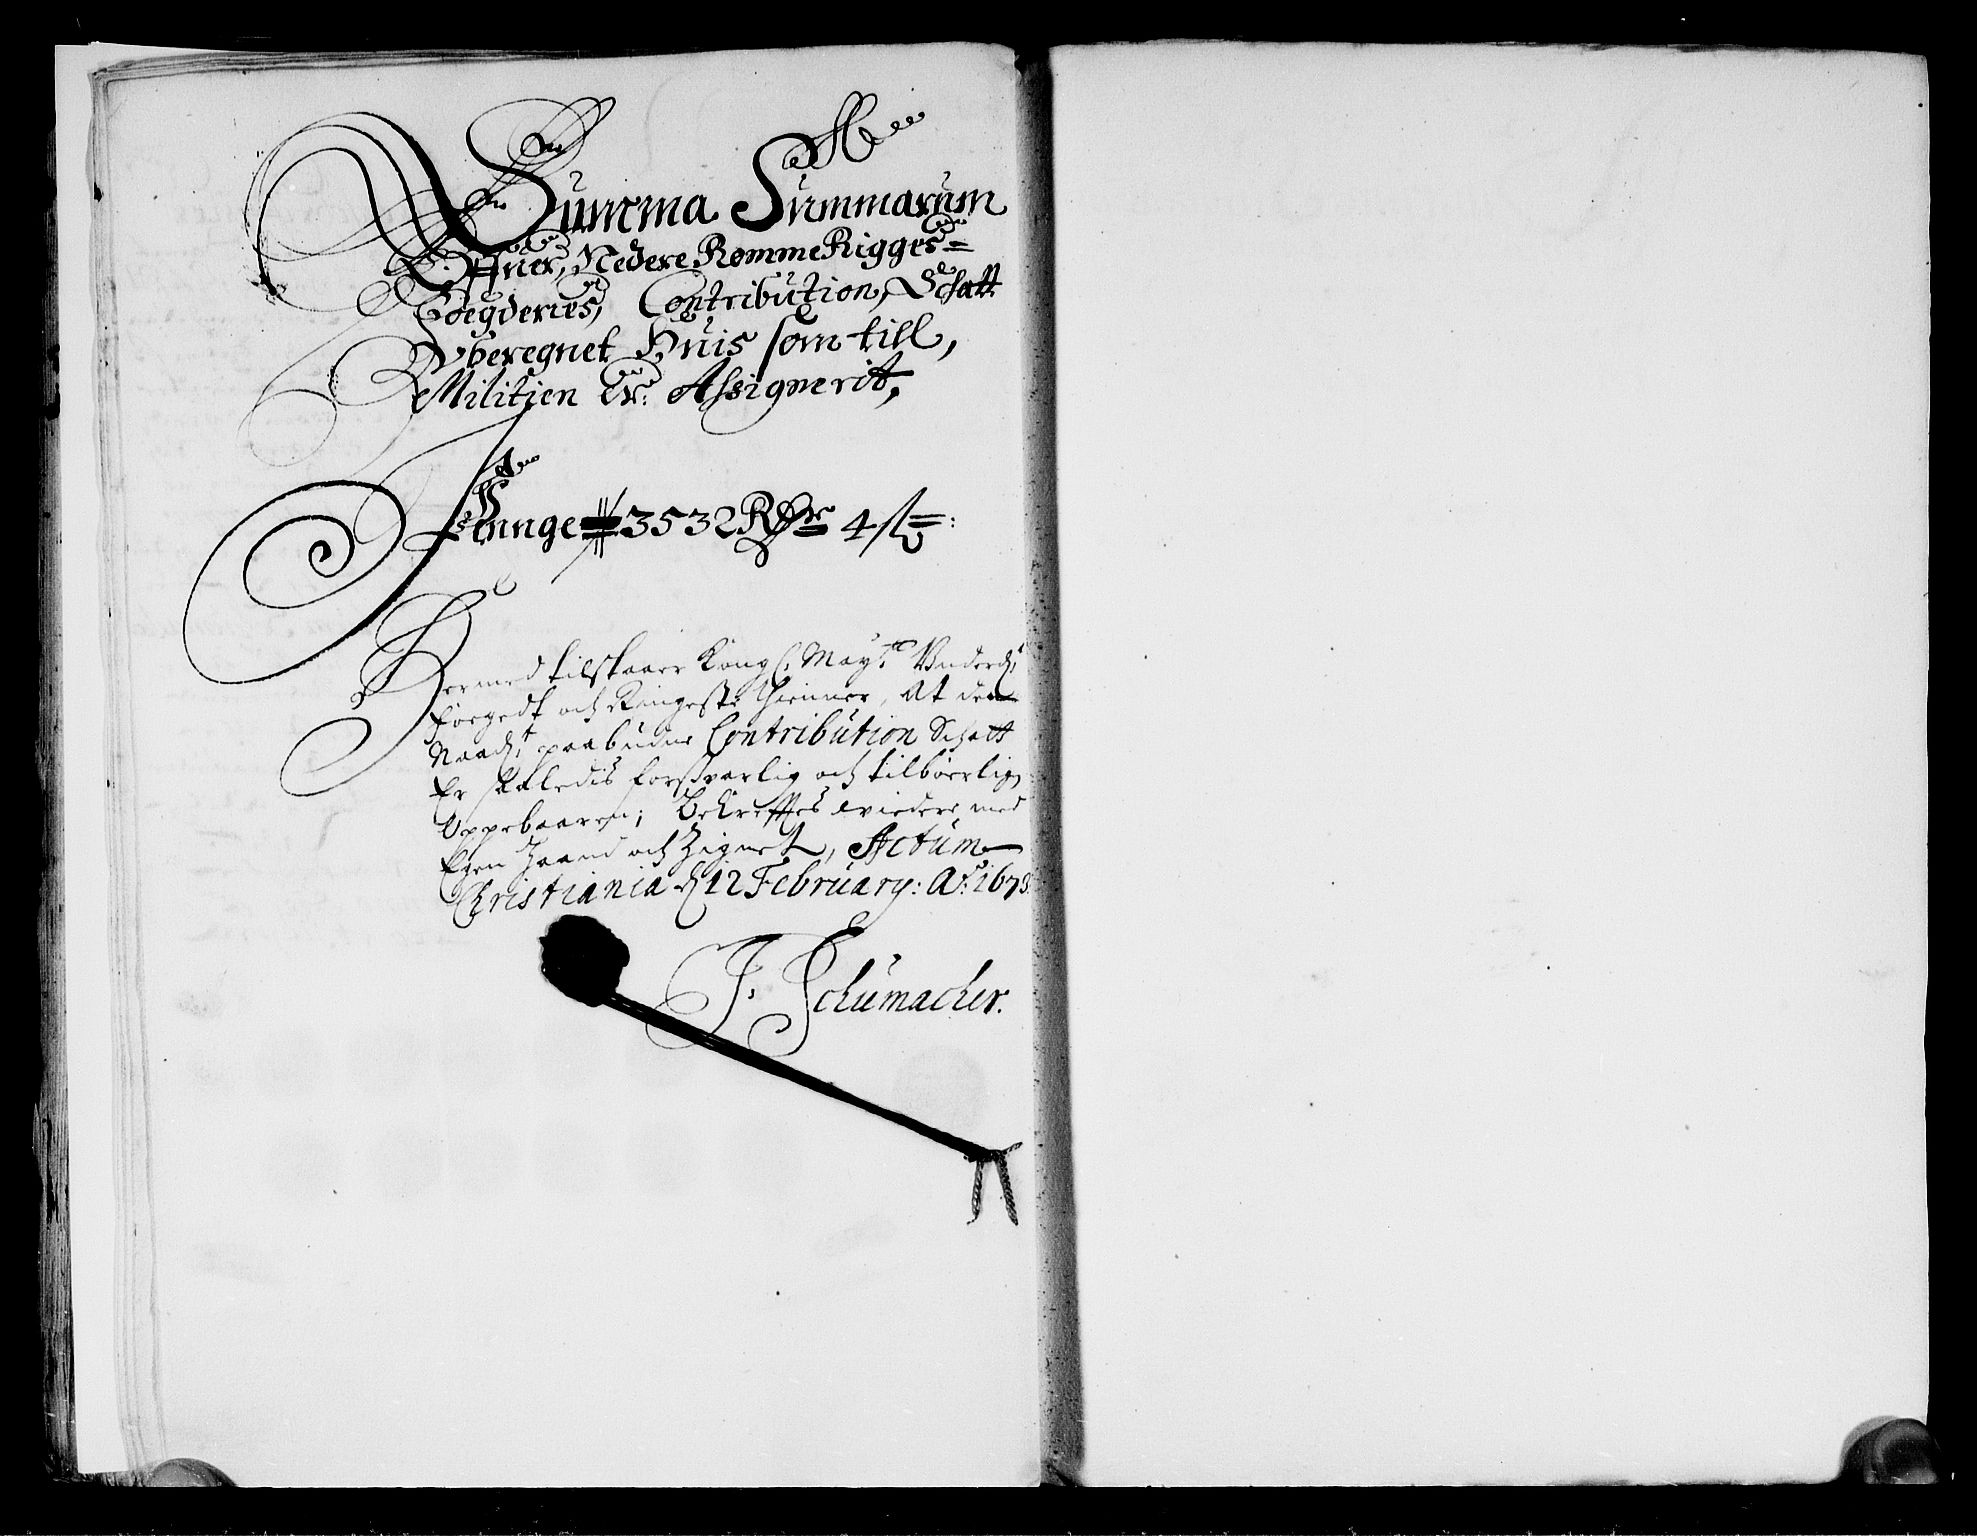 Summa Summarum
Offuer, Nedere Romme Rigges=
Foegderies, Contribution, Schatt
Vberegnet huis som till,
Militien Er: Assignerit,
Penge 3532 Rdr 4 s:
Hermed tilstaaer Kongl: Mayts Underd:
Foegedt och Ringeste thienner, At den
Naad:t paabudne Contribution Schatt
Er saaledis forsvarlig och tilbøerlig
Oppebaaren; Bekrefftes widere med
Egen Haand och Zignet, Actum
Christiania d 12 February: Ao: 1673
J. Schumacher.